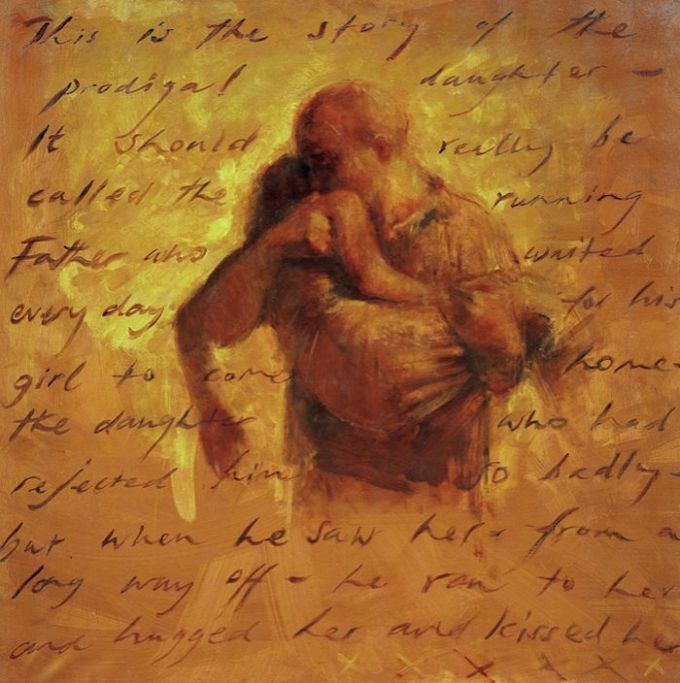 This is the story of the
prodigal daughter -
It should really be
called the running
Father who waited
every day for his
girl to come home -
the daughter who had
rejected him so badly -
but when he saw her - from a
long way off - he ran to her
and hugged her and kissed her
x x x x x x